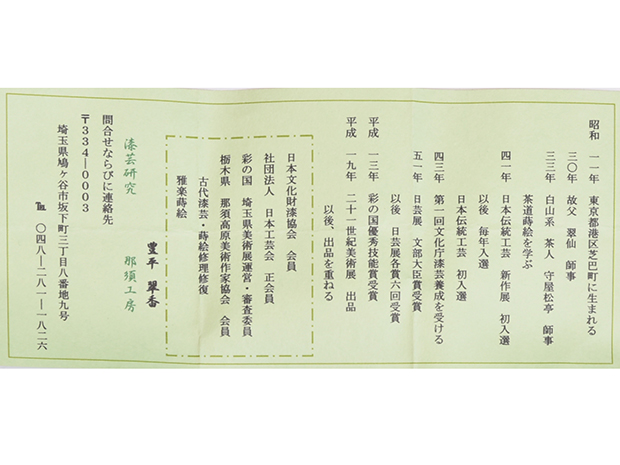 昭和 一一年 東京都港区芝巴町に生まれる
三〇年 故父 翠仙 師事
三三年 白山系 茶人 守屋松亭 師事
茶道蒔絵を学ぶ
四一年 日本伝統工芸 新作展 初入選
以後 毎年入選
日本伝統工芸 初入選
四三年 第一回文化庁漆芸養成を受ける
五一年 日芸展 文部大臣賞受賞
以後 日芸展各賞六回受賞
平成 一三年 彩の国優秀技能賞受賞
平成 一九年 二十一世紀美術展 出品
以後、出品を重ねる
日本文化財漆協会 会員
社団法人 日本工芸会 正会員
彩の国 埼玉県美術展運営・審査委員
栃木県 那須高原美術作家協会 会員
古代漆芸・蒔絵修理修復
雅楽蒔絵
豊平 翠香
漆芸研究 那須工房
問合せならびに連絡先
〒334―0003
埼玉県鳩ヶ谷市坂下町三丁目八番地九号
℡ 〇四八―二八一―一八二六